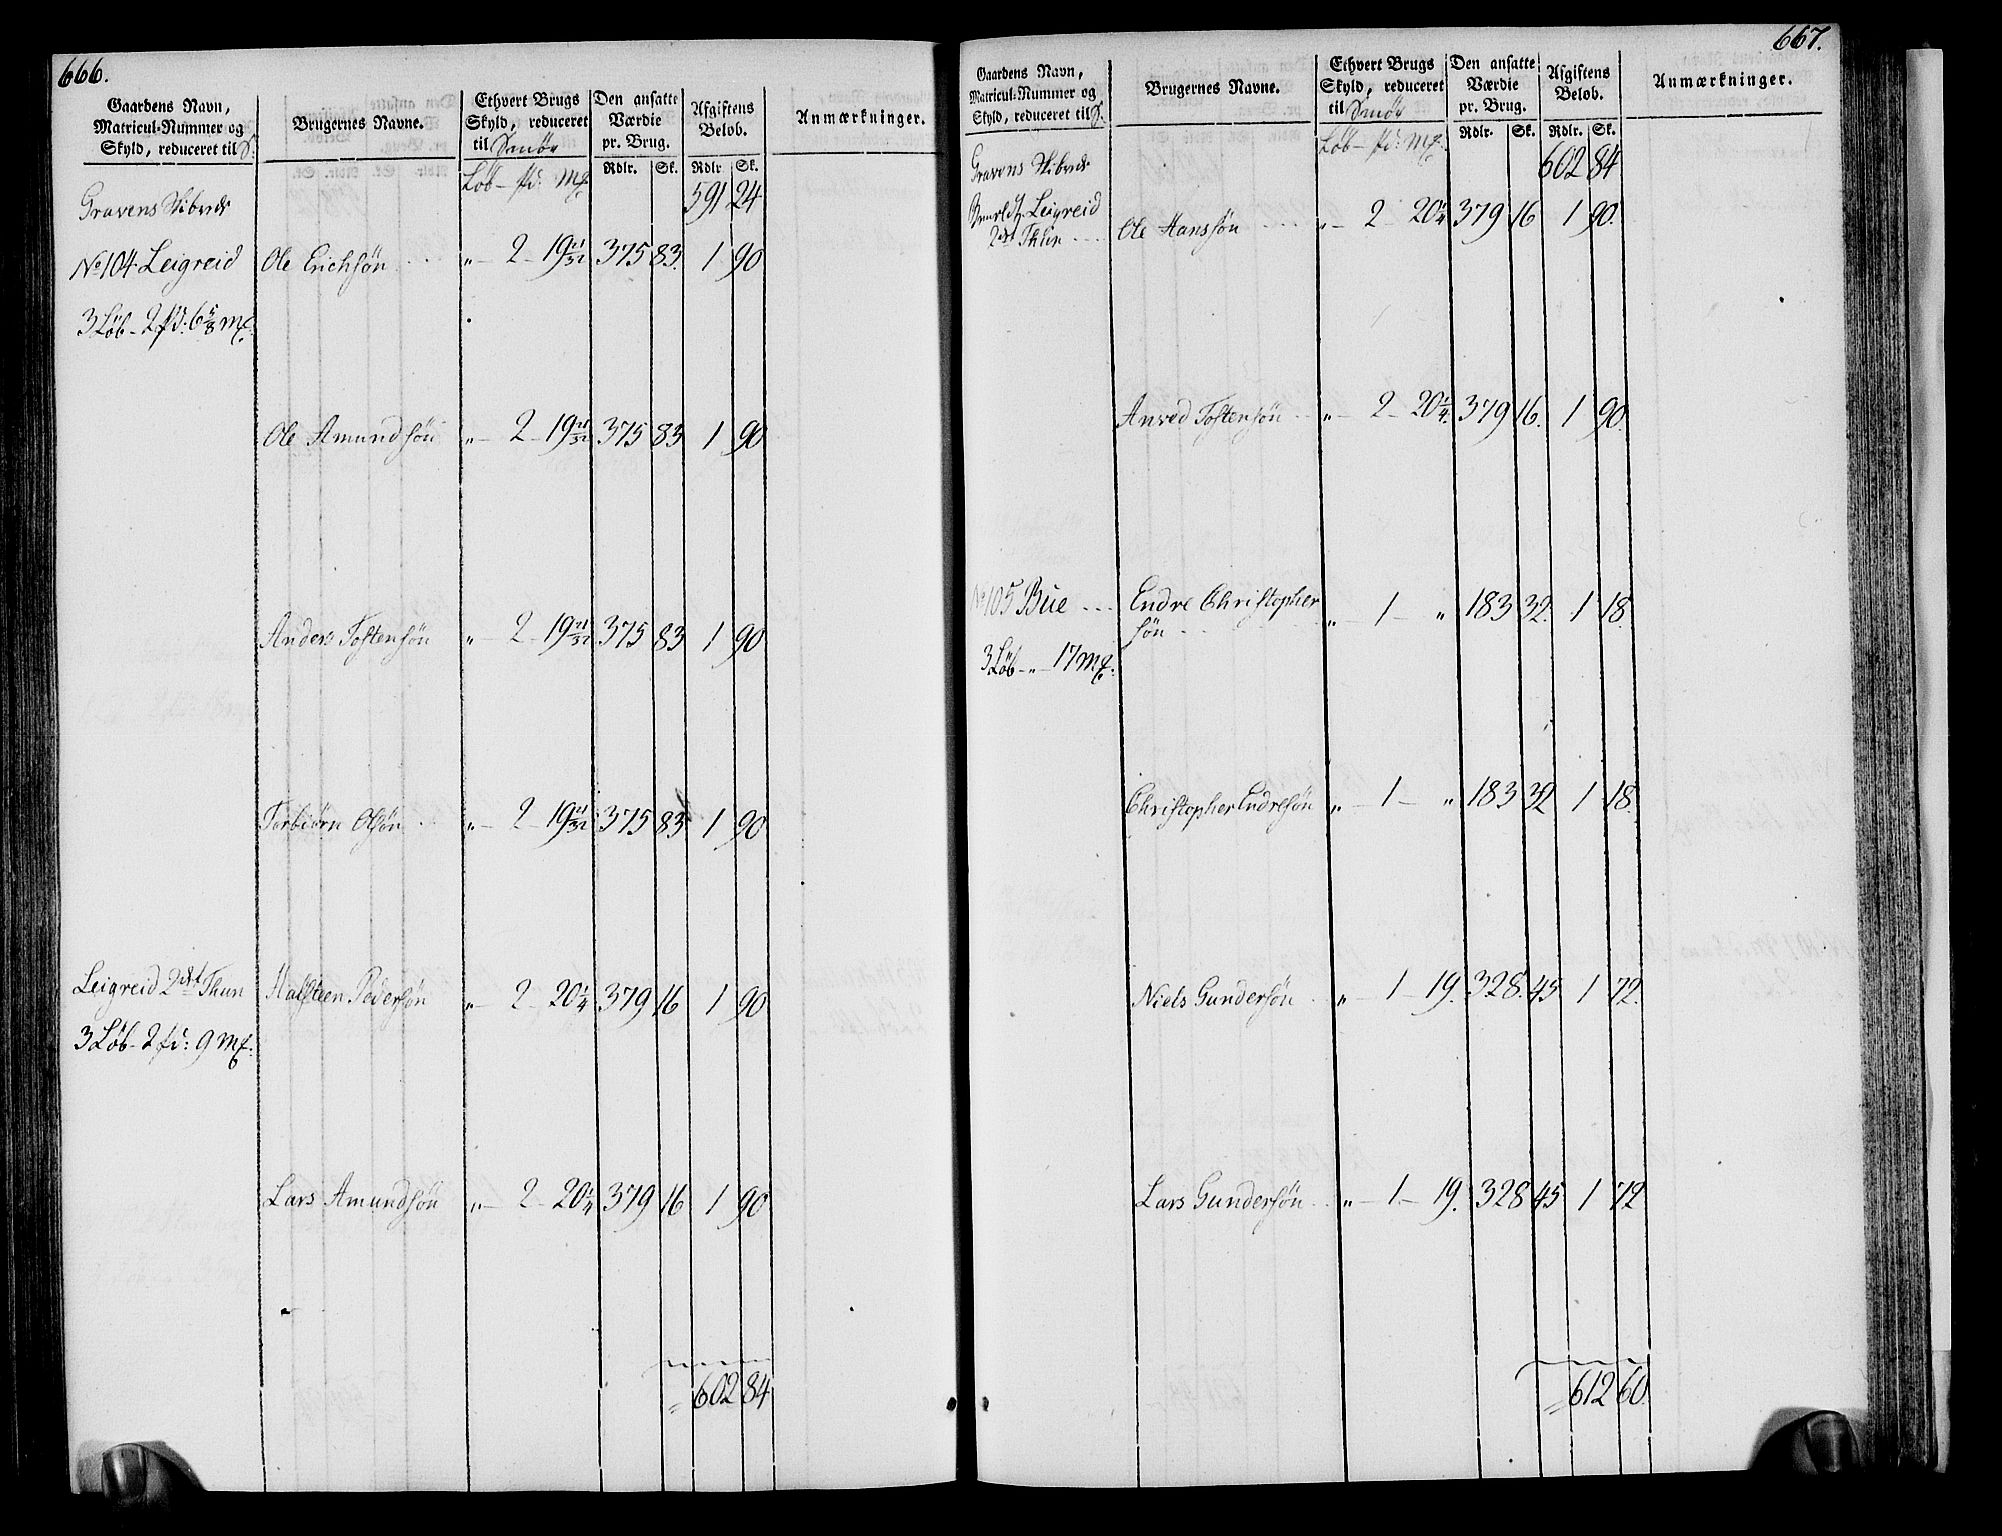 666.
Gaardens Navn,
Matricul-Nummer og
Skyld, reduceret til S.
Brugernes Navne.
Ethvert Brugs
Skyld, reduceret
til Smör
Den ansatte
Værdie
pr. Brug.
Afgiftens
Beløb.
Anmærkninger.
Rdlr. Sk. Rdlr Sk.
Gravens Skibrede Löb - pd: mk 591 24
No 104. Leigreid Ole Erichsön „ - 2 - 19 21/32 375 83. 1 90
3 Löb - 2 pd: 6 5/8 mk:
Ole Amundsön „ - 2 - 19 21/32 375 83 1 90
Anders Tostensön „ - 2 - 19 21/32 375 83 1 90
Torbiörn Olsön „ - 2 - 19 21/32 375 83 1 90
Leigreid 2det Thun Halsteen Pedersön „ - 2 - 20 1/4 379 16 1 90
3 Löb - 2 pd: 9 mk:
Lars Amundsön „ - 2 - 20 1/4 379 16 1 90
602 84
667.
Gaardens Navn,
Matricul-Nummer og
Skyld, reduceret til S.
Brugernes Navne.
Ethvert Brugs
Skyld, reduceret
til Smör
Den ansatte
Værdie
pr. Brug.
Afgiftens
Beløb.
Anmærkninger.
Rdlr. Sk. Rdlr. Sk.
Gravens Skibrede Löb - pd: mk: 602 84
Leigreid
2det Thun Ole Hanssön „ - 2 - 20 1/4 379 16 1 90.
Anved Tostensön „ - 2 - 20 1/4. 379 16. 1 90.
No 105 Bue Endre Christopher
sön „ - 1 - „ 183 32. 1 18.
3 Löb - „ - 17 mk:
Christopher Endresön „ - 1 - „ 183 32 1 18.
Niels Gundersön „ - 1 - 19. 328. 45 1 72.
Lars Gundersön „ - 1 - 19. 328 45 1 72
612 60.